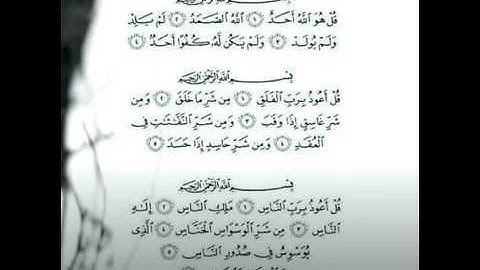 قُلْ هُوَ ٱللَّهُ أَحَدٌ ١ ٱللَّهُ ٱلصَّمَدُ ٢ لَمْ يَلِدْ
وَلَمْ يُولَدْ ٣ وَلَمْ يَكُن لَّهُۥ كُفُوًا أَحَدٌۢ ٤
بِسْمِ ٱللَّهِ ٱلرَّحْمَٰنِ ٱلرَّحِيمِ
قُلْ أَعُوذُ بِرَبِّ ٱلْفَلَقِ ١ مِن شَرِّ مَا خَلَقَ ٢ وَمِن
شَرِّ غَاسِقٍ إِذَا وَقَبَ ٣ وَمِن شَرِّ ٱلنَّفَّٰثَٰتِ فِى
ٱلْعُقَدِ ٤ وَمِن شَرِّ حَاسِدٍ إِذَا حَسَدَ ٥
بِسْمِ ٱللَّهِ ٱلرَّحْمَٰنِ ٱلرَّحِيمِ
قُلْ أَعُوذُ بِرَبِّ ٱلنَّاسِ ١ مَلِكِ ٱلنَّاسِ ٢ إِلَٰهِ
ٱلنَّاسِ ٣ مِن شَرِّ ٱلْوَسْوَاسِ ٱلْخَنَّاسِ ٤ ٱلَّذِى
يُوَسْوِسُ فِى صُدُورِ ٱلنَّاسِ ٥